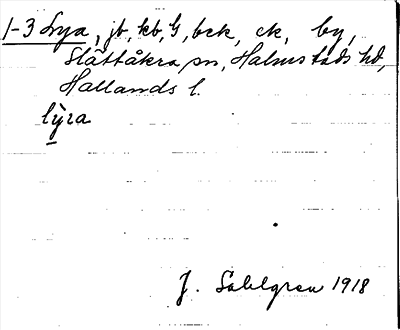 1-3 Lya, jb, kb, G, bck, ck, by,
Slättåkra sn, Halmstads hd,
Hallands l.
lỳra
J. Sahlgren 1918